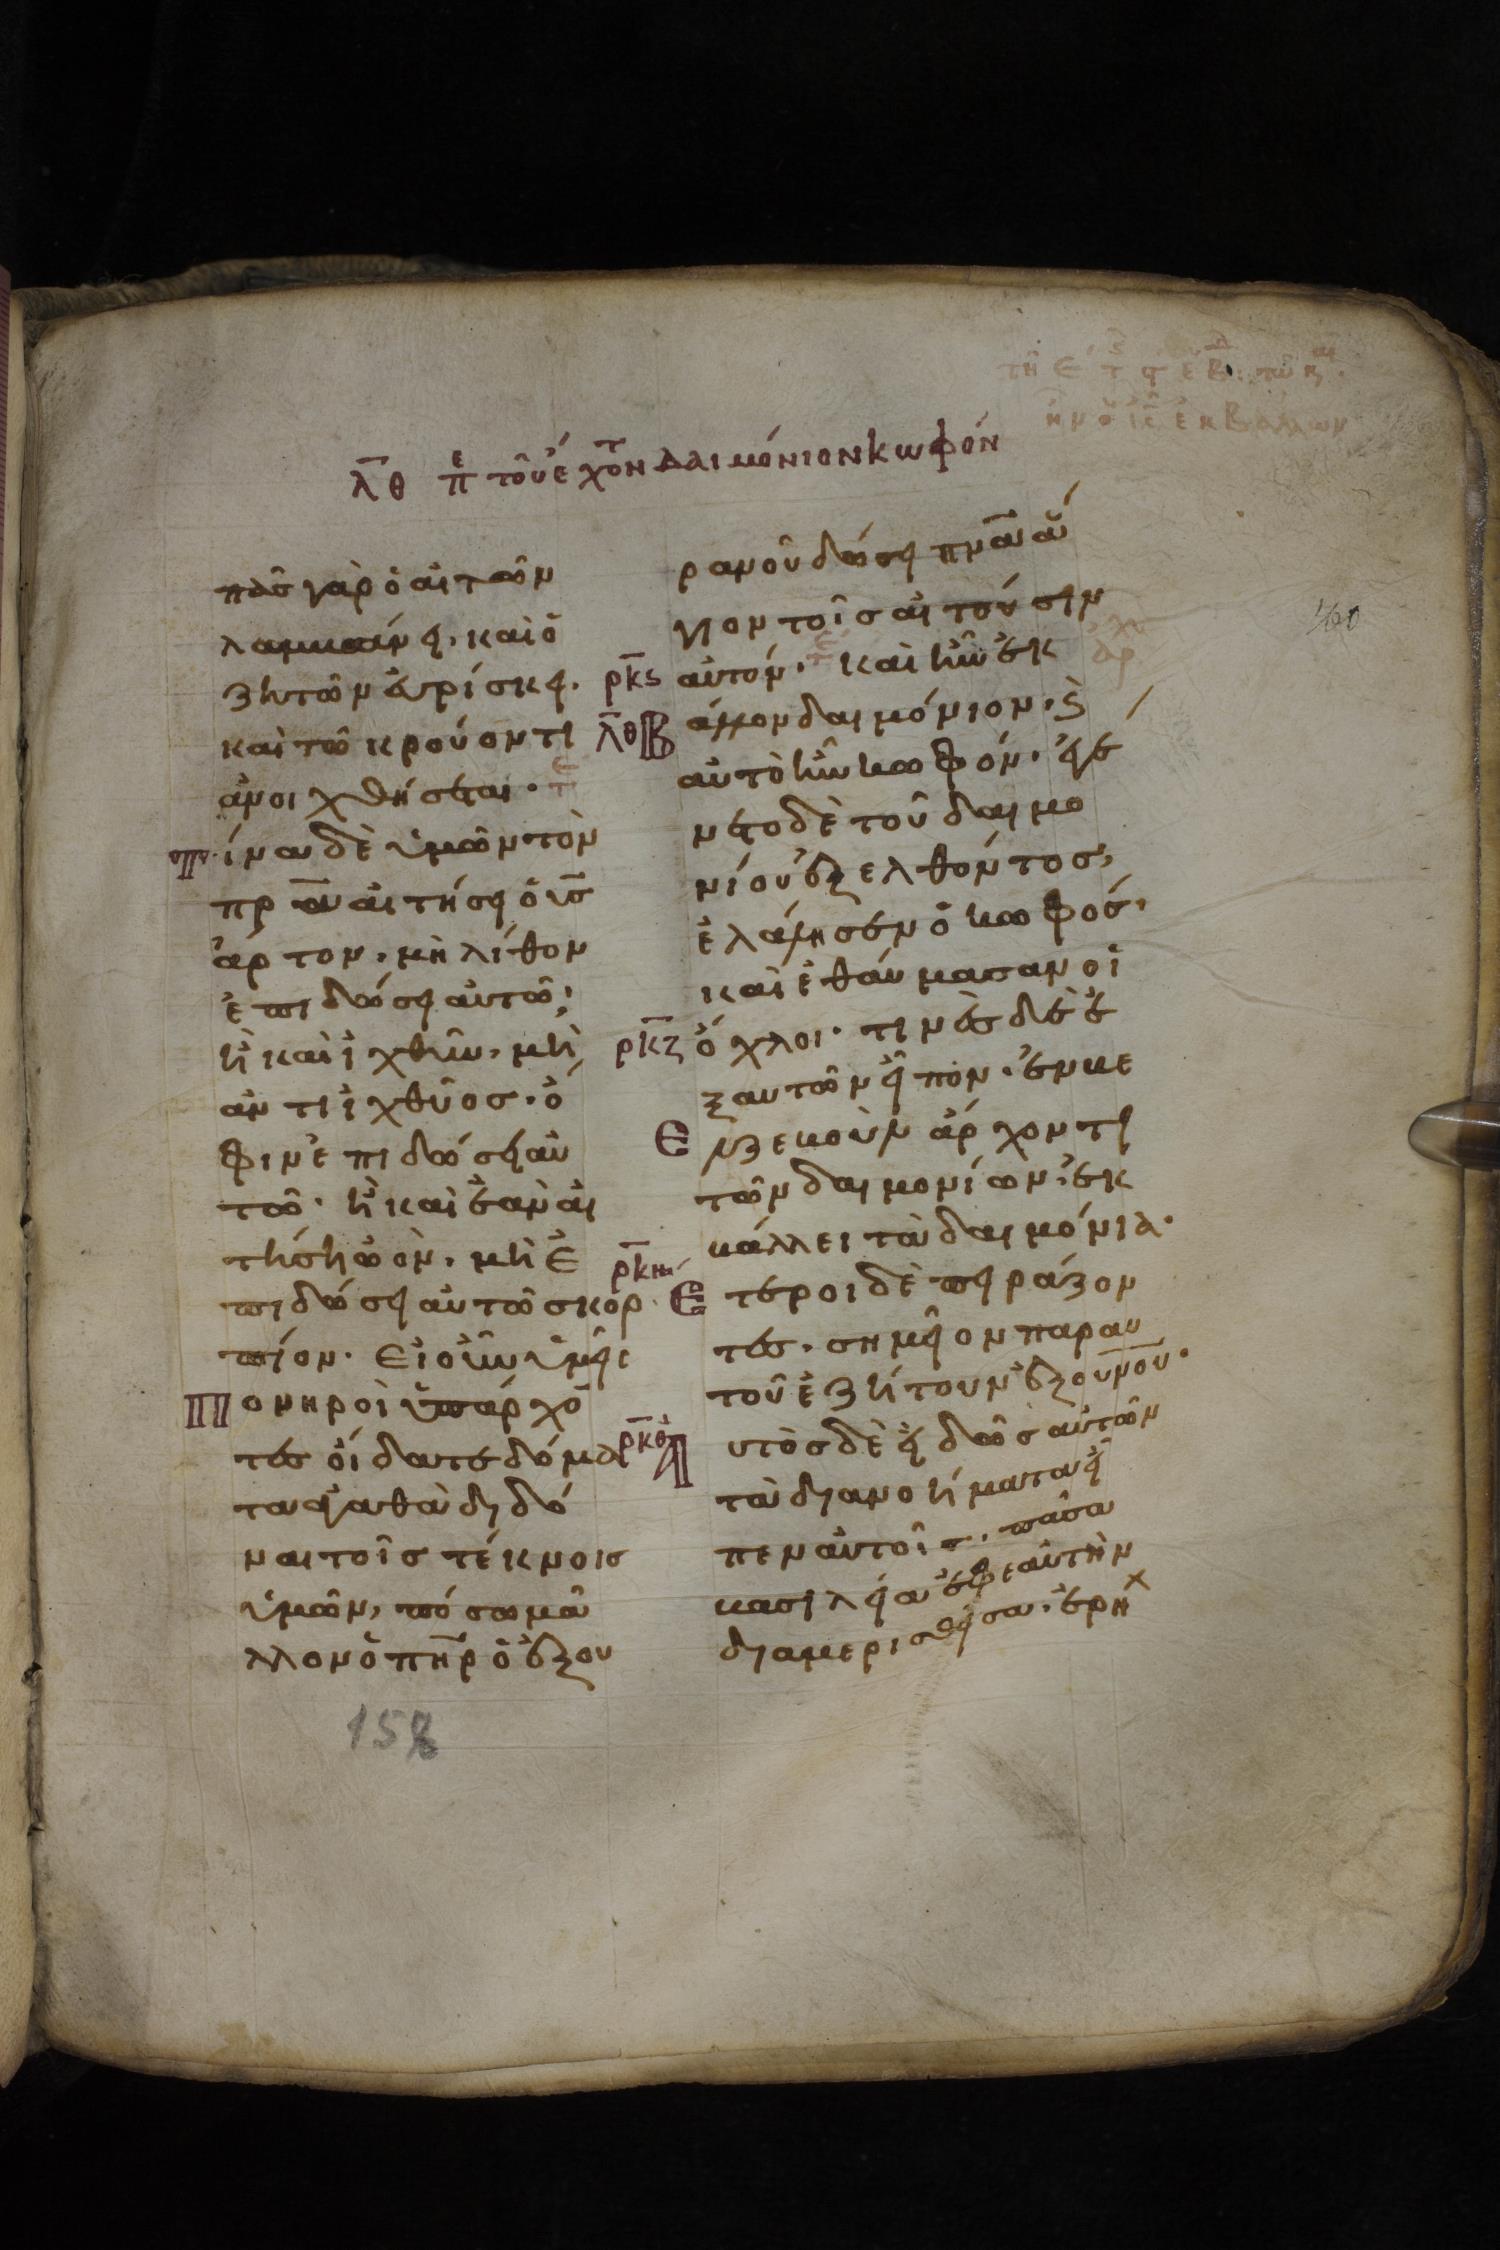 λθ πε του εχοντ δαιμόνιον κωφόν
πᾶσ γὰρ ὁ αἰτῶν
λαμβάνει· καὶ ὁ
ζητῶν εὑρίσκει·
καὶ τῶ κρούοντι
ἀνοιγχθήσεται·
Τίνα δὲ ὑμῶν τὸν
πρ̅α αἰτήσει ὁ υ̅σ
ἄρτον, μὴ λίθον
ἐπιδώσει αὐτῶ;
ἢ καὶ ἰχθὺν, μὴ
ἀντὶ ἰχθύοσ ὄ
φιν ἐπιδώσει αὐ
τῶ· ἢ καὶ ἐὰν αἰ
τήση ὠὸν, μὴ ἐ
πιδώσει αὐτῶ σκορ
πίον· Εἰ οὖν ὑμεῖσ
Πονηροὶ ὑπάρχο̅
τεσ οἴδατε δόμα
τα ἀγαθὰ διδό
ναι τοῖσ τέκνοισ
ὑμῶν, πόσω μᾶ
λλον ὁ πη̅ρ ὁ ἐξ ου
ραμοῦ δώσει πν̅α ἅ
γιον τοῖσ αἰτοῦσιν
ρκς αὐτόν· καὶ ἦν ἐκ
λθ Βάλλον δαιμόνιον, ϗ
αὐτὸ ἦν κωφόν· ἐγέ
νετο δὲ τοῦ δαιμο
νίου ἐξελθόντοσ,
ἐλάλησεν ὁ κωφόσ·
καὶ ἐθαύμασαν οἱ
ρκζ ὄχλοι· τινὲσ δὲ ἐ
ξ αυτῶν εἶπον· ἐν βε
Ελζεβοὺλ ἄρχοντι
τῶν δαιμονίων, ἐκ
βάλλει τὰ δαιμόνια·
ρκη Ετεροι δὲ πειράζον
τεσ, σημεῖον παρ αυ
τοῦ ἐζήτουν ἐξ ου̅νου̅·
ρκθ Αυτὸσ δὲ εἰδὼσ αὐτῶν
τὰ διανοήματα εἶ
πεν αὐτοῖσ· πᾶσα
βασιλεία ἐφ εαυτὴν
διαμερισθεῖσα, ἐρη
158
160